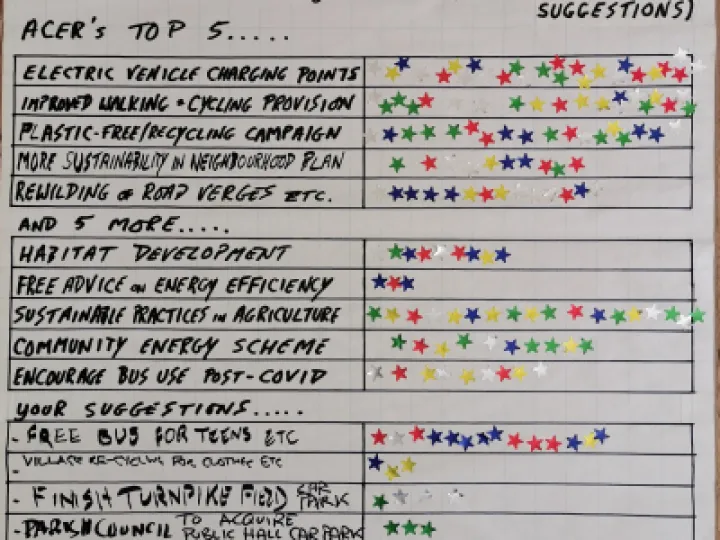 SUGGESTIONS)
ACER's TOP 5.....
ELECTRIC VEHICLE CHARGING POINTS
IMPROVED WALKING + CYCLING PROVISION
PLASTIC-FREE/RECYCLING CAMPAIGN
MORE SUSTAINABILITY IN NEIGHBOURHOOD PLAN
REWILDING OF ROAD VERGES ETC.
AND 5 MORE.....
HABITAT DEVELOPMENT
FREE ADVICE ON ENERGY EFFICIENCY
SUSTAINABLE PRACTICES IN AGRICULTURE
COMMUNITY ENERGY SCHEME
ENCOURAGE BUS USE POST-COVID
YOUR SUGGESTIONS.....
- FREE BUS FOR TEENS ETC
- VILLAGE RE-CYCLING FOR CLOTHES ETC
- FINISH TURNPIKE FIELD CAR PARK
- PARISH COUNCIL TO ACQUIRE PUBLIC HALL CAR PARK